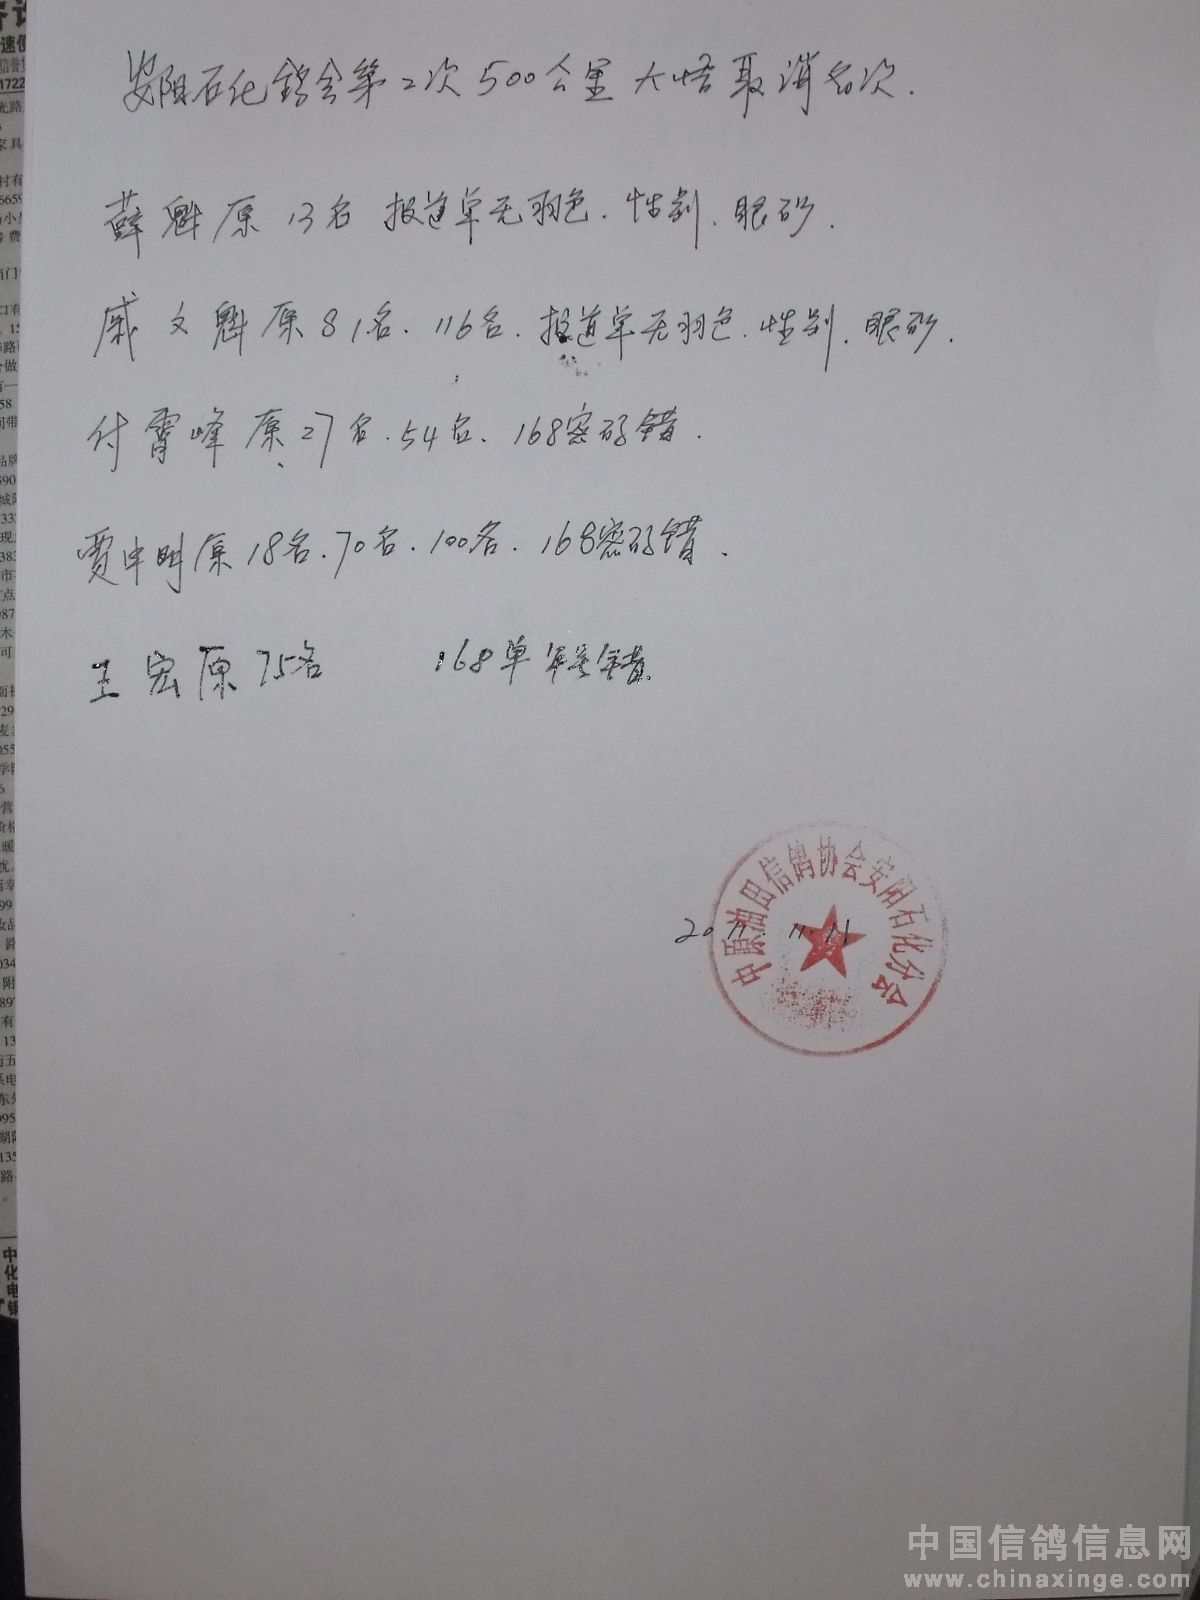 安阳石化鸽会第2次500公里大悟取消名次.
薛魁原13名 报道单无羽色.性别.眼砂.
戚文魁原81名.116名.报道单无羽色.性别.眼砂.
付霄峰原27名.54名.168密码错.
贾中明原18名.70名.100名.168密码错.
王宏原75名 168单 错.
中原油田信鸽协会安阳石化分会
2011.11.11
中国信鸽信息网
www.chinaxinge.com